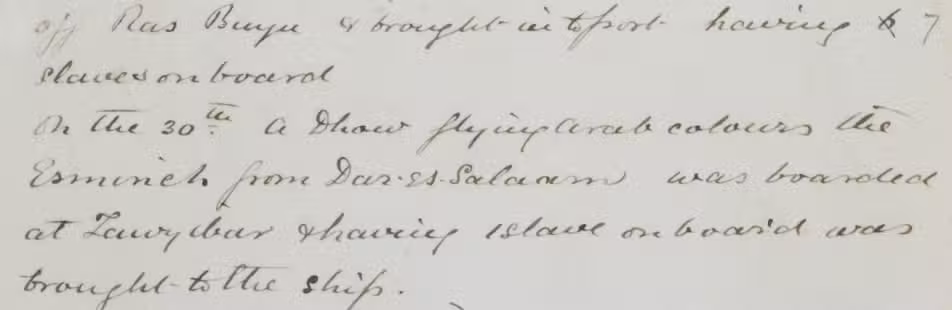 off Ras Buyu & brought into port having 7
slaves on board
On the 30th a Dhow flying Arab colours the
Esmineh from Dar-es-Salaam was boarded
at Zanzibar & having 1 slave on board was
brought to the ship.